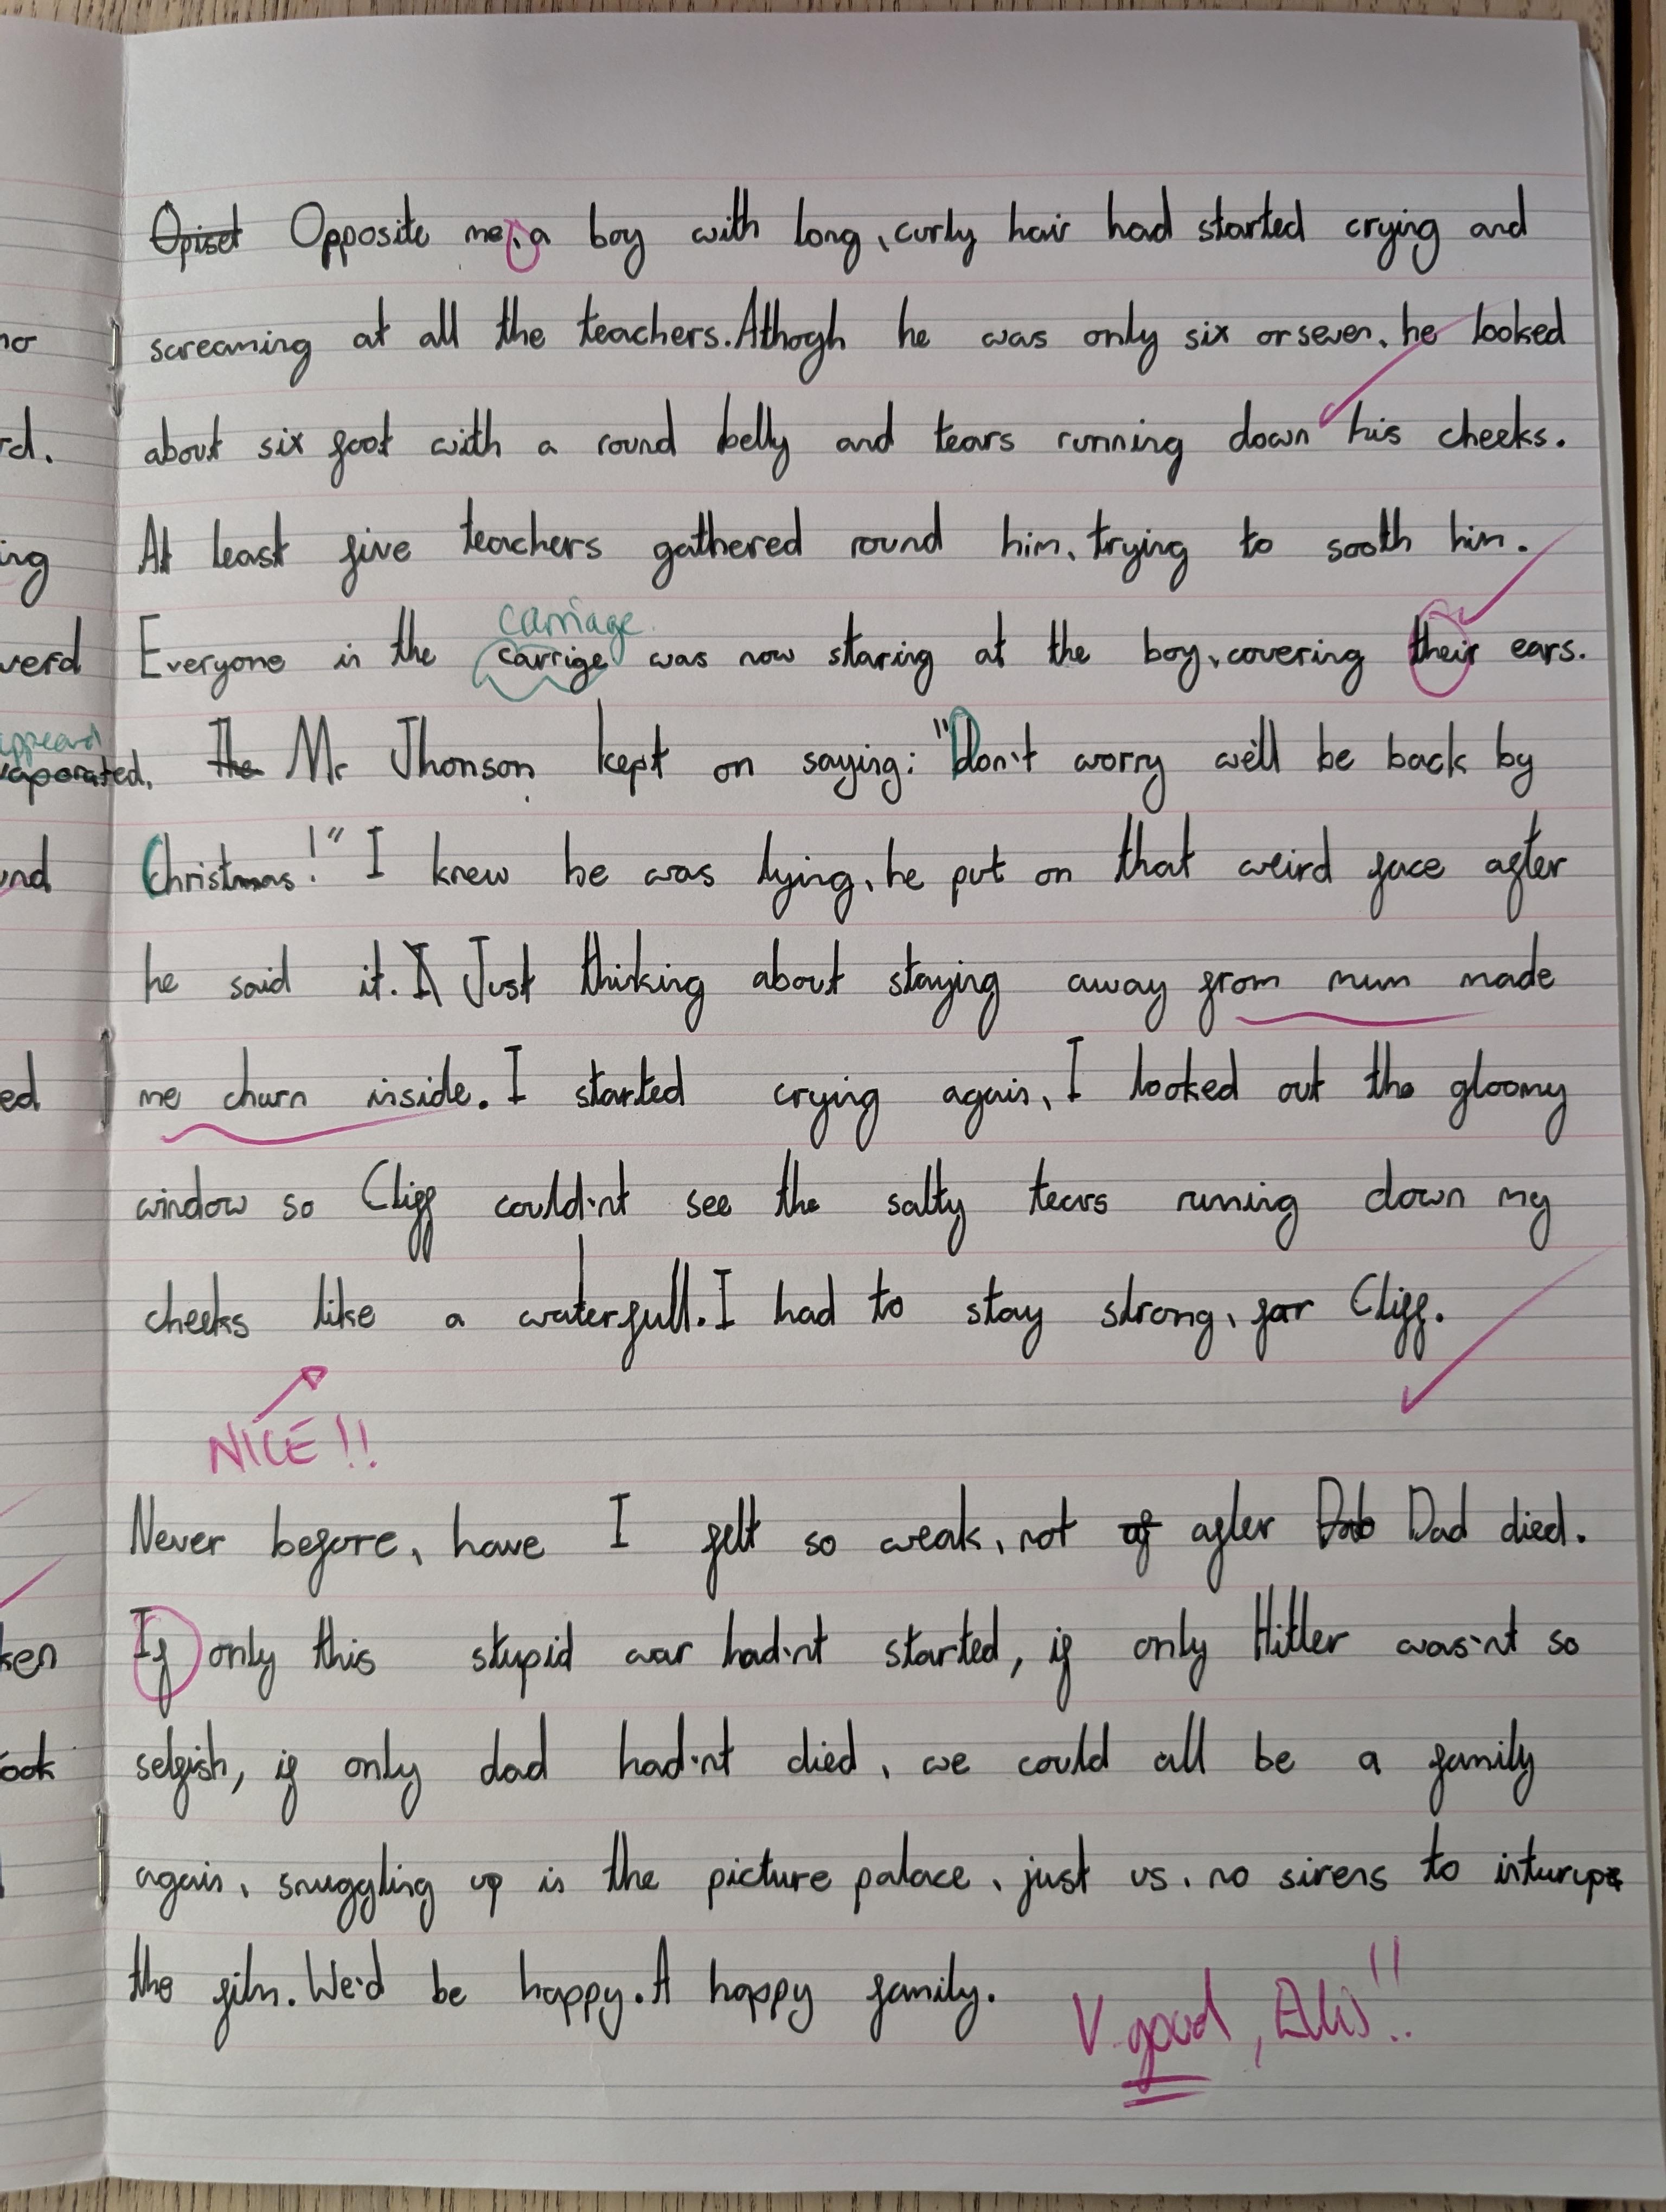 no
rd.
ing
verd
appeard
vaporated.
und
ed
ken
ook
Opiset Opposite me, a boy with long, curly hair had started crying and
screaming at all the teachers. Athogh he was only six or seven, he looked
about six foot with a round belly and tears running down his cheeks.
At least five teachers gathered round him, trying to sooth him.
carriage
Everyone in the carrige was now staring at the boy, covering their ears.
The Mr Jhonson kept on saying: "Don't worry we'll be back by
Christmas!" I knew he was lying, he put on that weird face after
he said it. I Just thinking about staying away from mum made
me churn inside. I started crying again, I looked out the gloomy
window so Cliff could'nt see the salty tears runing down my
cheeks like a waterfull. I had to stay strong, for Cliff.
NICE!!
Never before, have I felt so weak, not af after Dab Dad died.
If only this stupid war had'nt started, if only Hitler was'nt so
selfish, if only dad had'nt died, we could all be a family
again, snuggling up in the picture palace, just us, no sirens to inturupt
the film. We'd be happy. A happy family.
V. good,